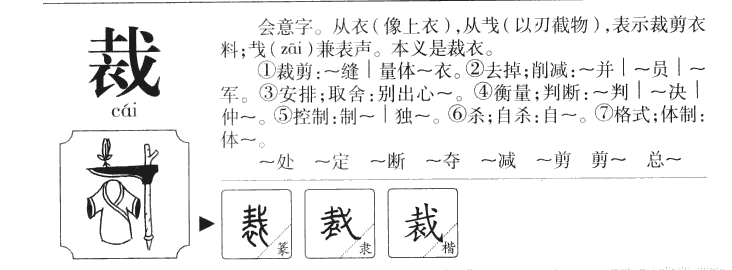 裁
cái
会意字。从衣(像上衣),从𢦏(以刃截物),表示裁剪衣
料;𢦏(zāi)兼表声。本义是裁衣。
①裁剪:～缝｜量体～衣。②去掉;削减:～并｜～员｜～
军。③安排;取舍:别出心～。④衡量;判断:～判｜～决｜
仲～。⑤控制:制～｜独～。⑥杀;自杀:自～。⑦格式;体制:
体～。
～处 ～定 ～断 ～夺 ～减 ～剪 剪～ 总～
裁 篆
裁 隶
裁 楷